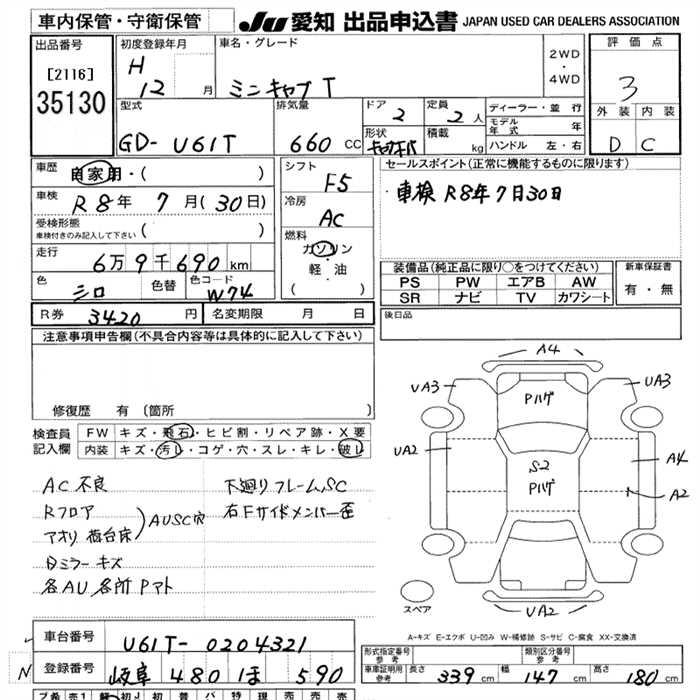 車内保管・守衛保管 JU 愛知 出品申込書 JAPAN USED CAR DEALERS ASSOCIATION
出品番号 [2116] 35130
初度登録年月 H 12 月
車名・グレード ミニキャブ T
2WD・4WD
評価点 3
外装 D 内装 C
型式 GD-U61T
排気量 660 CC
ドア 2
定員 2 人
形状
積載 kg
ディーラー・並行
モデル年式 年
ハンドル 左・右
車歴 自家用・( )
車検 R8年 7月(30日)
受検形態 車検付きのみ記入して下さい ( )
走行 6万9千690km
色 シロ 色替 色コード W74
シフト F5
冷房 AC
燃料 ガソリン・軽油 ( )
セールスポイント(正常に機能するものに限ります)
車検 R8年7月30日
装備品(純正品に限り○をつけてください)
PS PW エアB AW
SR ナビ TV カワシート
新車保証書 有・無
R券 3420 円 名変期限 月 日
後日品
注意事項申告欄(不具合内容等は具体的に記入して下さい)
修復歴 有 〔箇所 〕
検査員記入欄
FW キズ・飛石・ヒビ割・リペア跡・X要
内装 キズ・汚レ・コゲ・穴・スレ・キレ・破レ
AC不良
Rフロア
アオリ 荷台床 AUSC穴
日ミラーキズ
各AU 各所 Pマト
下廻りフレームSC
右Fサイドメンバー歪
A4
UA3
Pハゲ
UA3
UA2
S2
Pハゲ
A4
A2
スペア
UA2
A-キズ E-エクボ U-凹み W-補修跡 S-サビ C-腐食 XX-交換済
車台番号 U61T-0204321
N 登録番号 岐阜 480 ほ 590
形式指定番号 参考
類別区分番号 参考
車庫証明用 参考 長さ 339 cm 幅 147 cm 高さ 180 cm